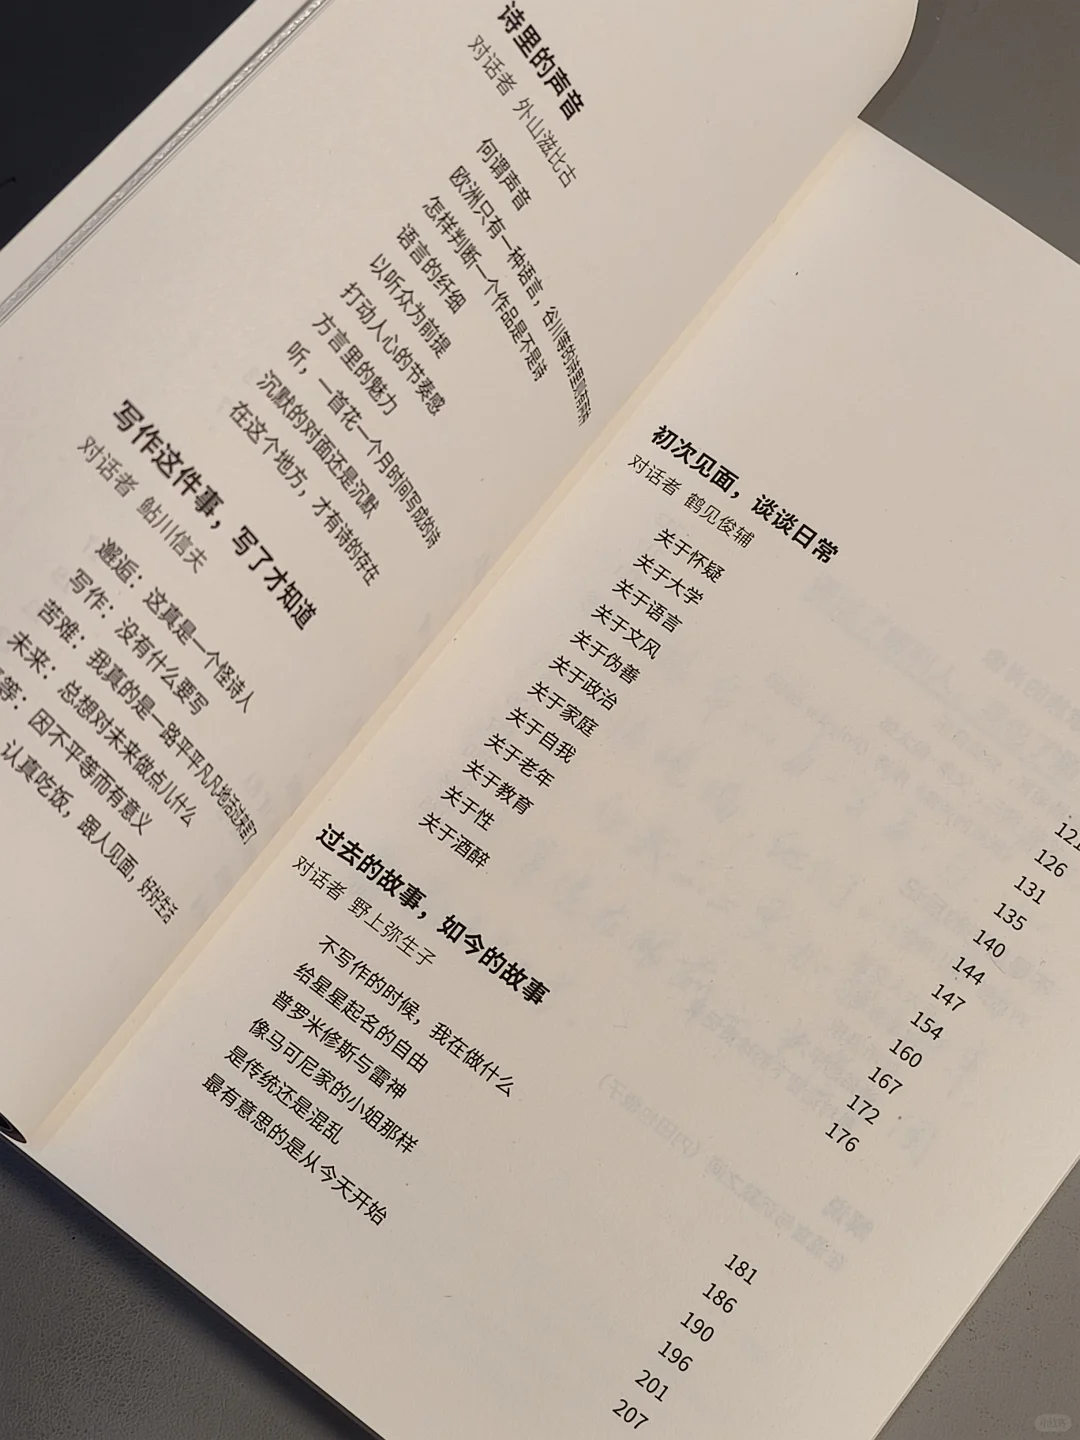 诗里的声音
对话者 外山滋比古
何谓声音
欧洲只有一种语言，谷川
怎样判断一个作品是不是诗
语言的纤细
以听众为前提
打动人心的节奏感
方言里的魅力
听，一首花一个月时间写成的诗
沉默的对面还是沉默
在这个地方，才有诗的存在
写作这件事，写了才知道
对话者 鲇川信夫
邂逅：这真是一个怪诗人
写作：没有什么要写
苦难：我真的是一路平平凡凡地活过来的
未来：总想对未来做点儿什么
等：因不平等而有意义
认真吃饭，跟人见面，好好生活
初次见面，谈谈日常
对话者 鹤见俊辅
关于怀疑 121
关于大学 126
关于语言 131
关于文风 135
关于伪善 140
关于政治 144
关于家庭 147
关于自我 154
关于老年 160
关于教育 167
关于性 172
关于酒醉 176
过去的故事，如今的故事
对话者 野上弥生子
不写作的时候，我在做什么 181
给星星起名的自由 186
普罗米修斯与雷神 190
像马可尼家的小姐那样 196
是传统还是混乱 201
最有意思的是从今天开始 207